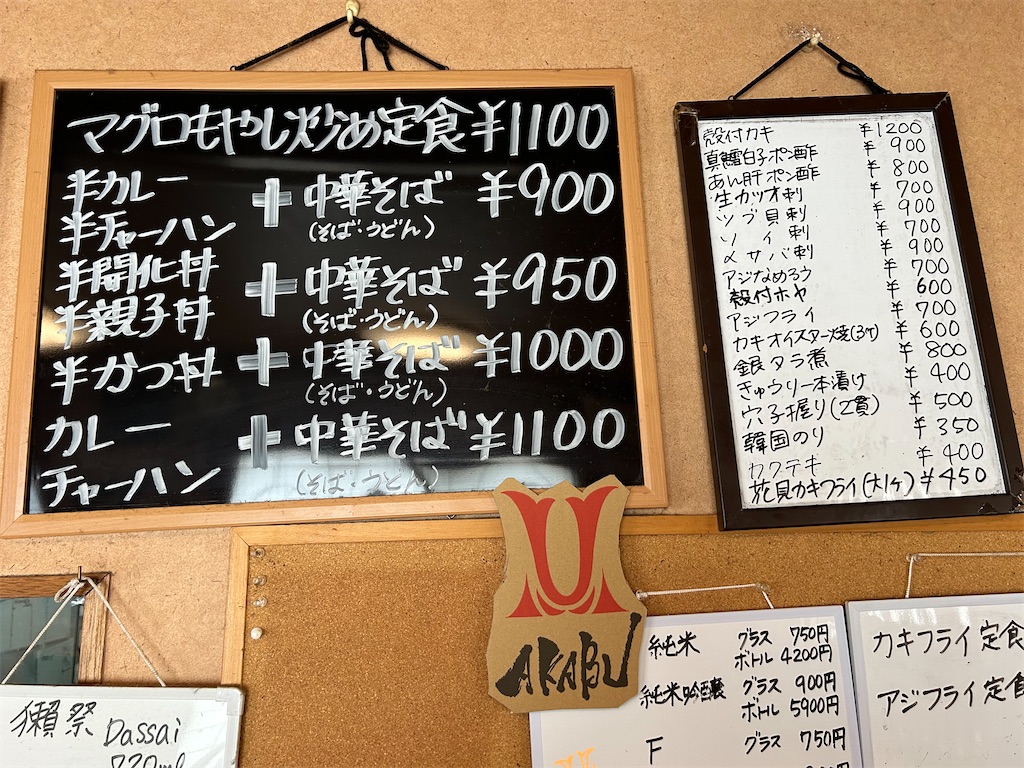 マグロもやし炒め定食 ¥1100
半カレー
半チャーハン + 中華そば ¥900
(そば・うどん)
半開化丼
半親子丼 + 中華そば ¥950
(そば・うどん)
半かつ丼 + 中華そば ¥1000
(そば・うどん)
カレー
チャーハン + 中華そば ¥1100
(そば・うどん)
殻付カキ ¥1200
真鱈白子ポン酢 ¥900
あん肝ポン酢 ¥800
生カツオ刺 ¥700
ツブ貝刺 ¥900
ソイ刺 ¥700
〆サバ刺 ¥900
アジなめろう ¥700
殻付ホヤ ¥600
アジフライ ¥700
カキオイスター焼(3ヶ) ¥600
銀タラ煮 ¥800
きゅうり一本漬け ¥400
穴子握り(2貫) ¥500
韓国のり ¥350
カクテキ ¥400
花見カキフライ(大1ヶ) ¥450
AKABU
純米 グラス 750円
ボトル 4200円
純米吟醸 グラス 900円
ボトル 5900円
F グラス 750円
カキフライ定食
アジフライ定食
獺祭 Dassai
720ml